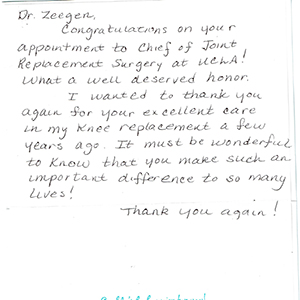 Dr. Zeegen,
Congratulations on your
appointment to Chief of Joint
Replacement Surgery at UCLA!
What a well deserved honor.
I wanted to thank you
again for your excellent care
in my knee replacement a few
years ago. It must be wonderful
to know that you make such an
important difference to so many
lives!
Thank you again!